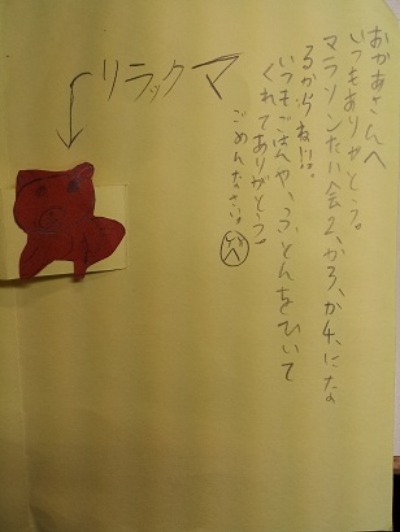 おかあさんへ
いつもありがとう。
マラソンたい会2、か3、か4、にな
るからね!!。
いつもごはんや、ふ、とんをひいて
くれてありがとう。
ごめんなさい。
リラックマ